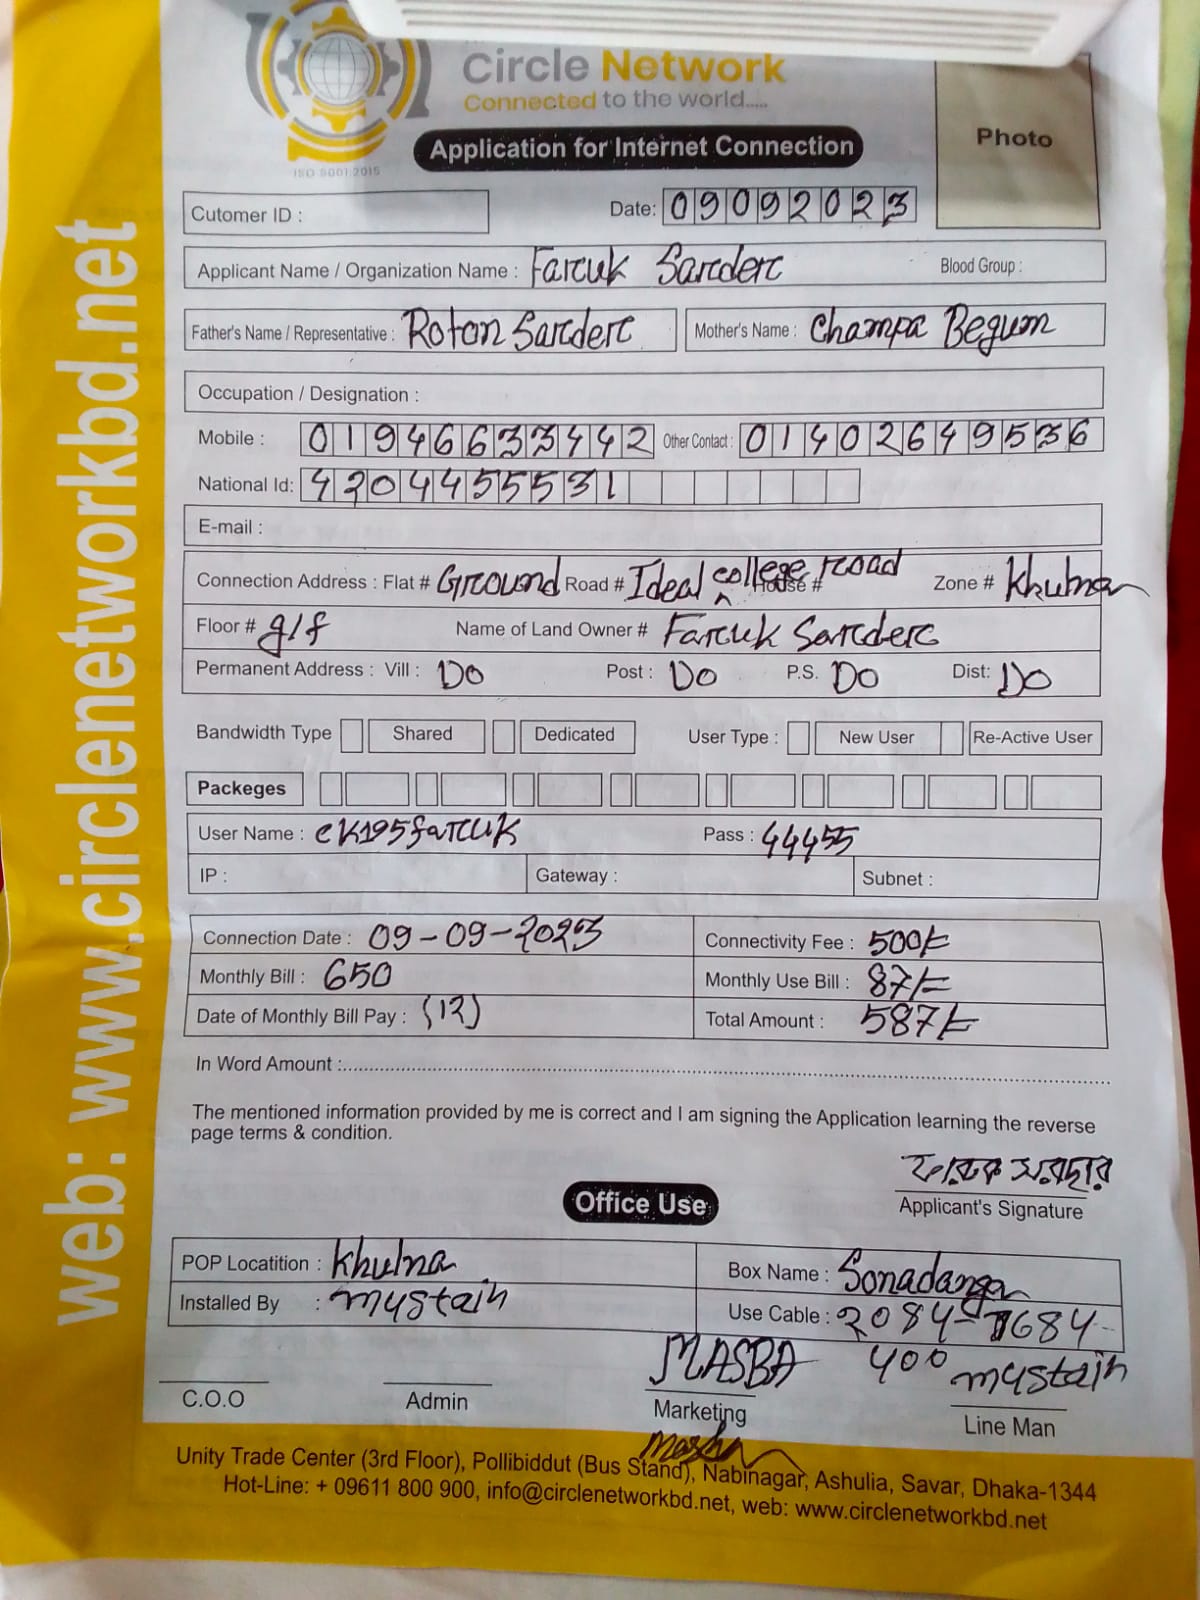 Circle Network
Connected to the world.....
ISO 9001:2015
Application for Internet Connection
Photo
Cutomer ID :
Date: 09092023
Applicant Name / Organization Name : Faruk Sarder Blood Group :
Father's Name / Representative : Roton Sarder Mother's Name : Champa Begum
Occupation / Designation :
Mobile : 01946633442 Other Contact : 01402649536
National Id: 4204455531
E-mail :
Connection Address : Flat # Ground Road # Ideal college road House # Zone # Khulna
Floor # g/f Name of Land Owner # Faruk Sarder
Permanent Address : Vill : Do Post : Do P.S. Do Dist: Do
Bandwidth Type Shared Dedicated User Type : New User Re-Active User
Packeges
User Name : ck195faruk Pass : 44455
IP : Gateway : Subnet :
Connection Date : 09-09-2023 Connectivity Fee : 500/=
Monthly Bill : 650 Monthly Use Bill : 87/=
Date of Monthly Bill Pay : (12) Total Amount : 587/=
In Word Amount :
The mentioned information provided by me is correct and I am signing the Application learning the reverse
page terms & condition.
ফারুক সরদার
Applicant's Signature
Office Use
POP Locatition : Khulna Box Name : Sonadanga
Installed By : mystain Use Cable : 2084-1684-
MASBA 400 mystain
C.O.O Admin Marketing Line Man
Unity Trade Center (3rd Floor), Pollibiddut (Bus Stand), Nabinagar, Ashulia, Savar, Dhaka-1344
Hot-Line: + 09611 800 900, info@circlenetworkbd.net, web: www.circlenetworkbd.net
web: www.circlenetworkbd.net